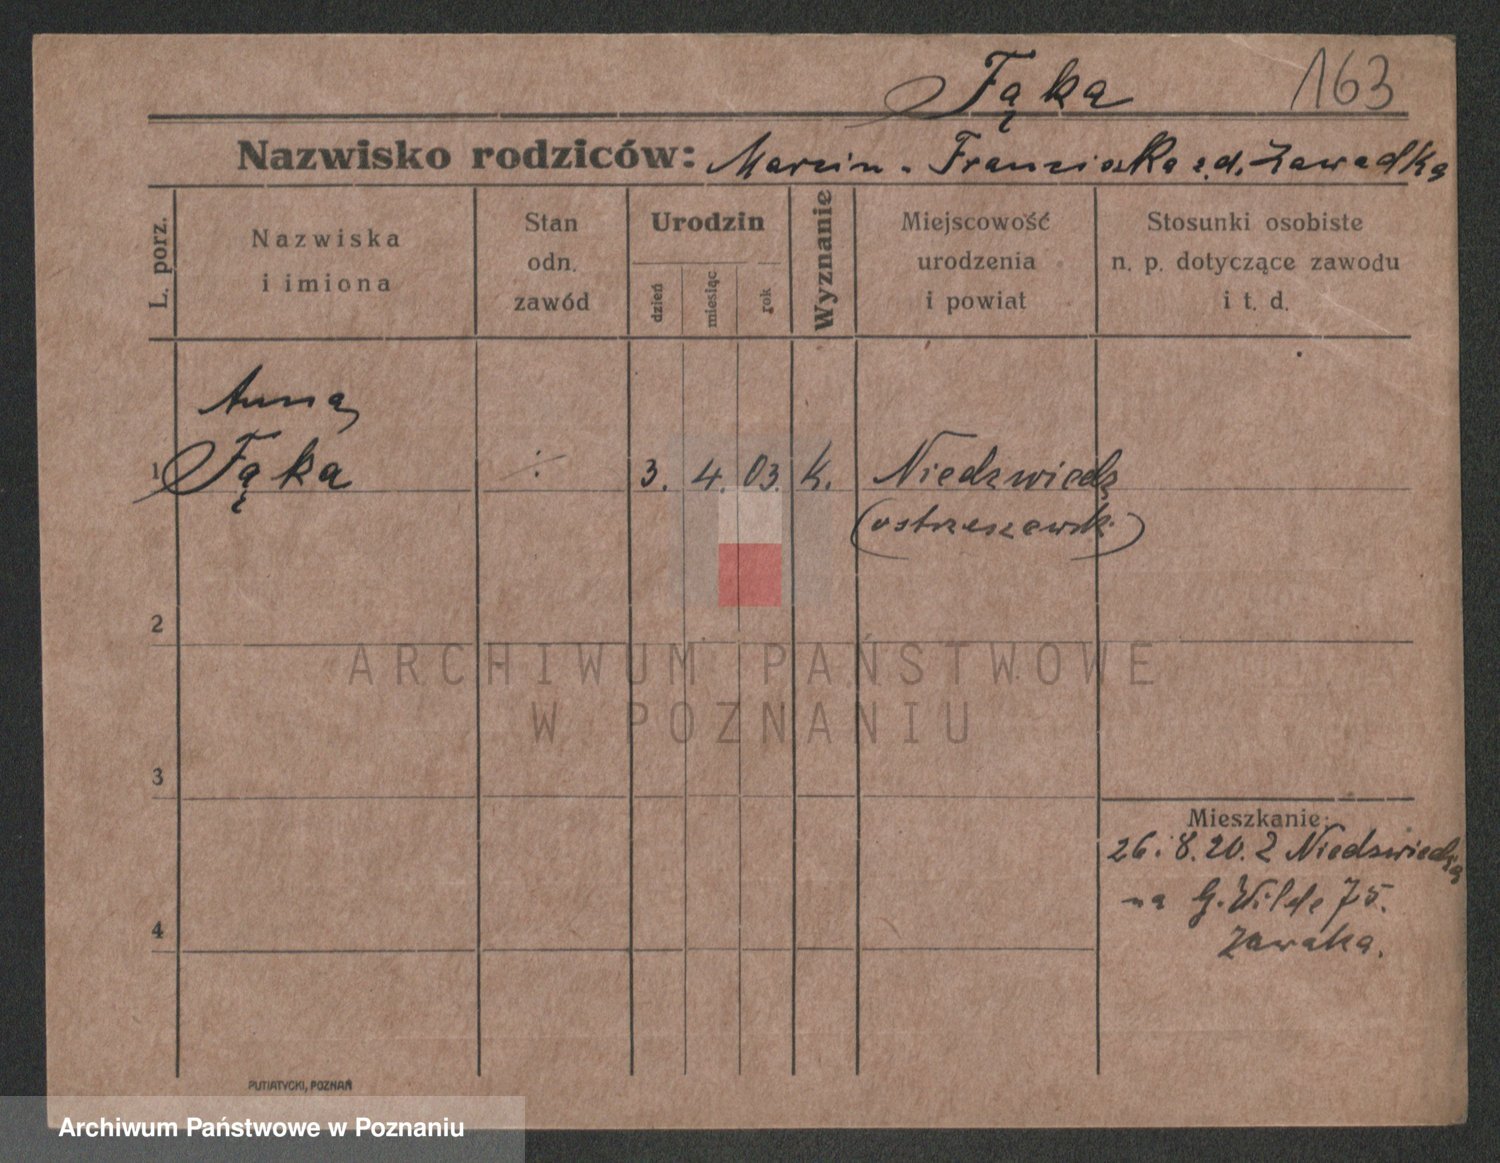 Fąka 163
Nazwisko rodziców: Marcin - Franciszka z d. Zawadka
L. porz.
Nazwiska
i imiona
Stan
odn.
zawód
Urodzin
dzień
miesiąc
rok
Wyznanie
Miejscowość
urodzenia
i powiat
Stosunki osobiste
n. p. dotyczące zawodu
i t. d.
Anna
1 Fąka ÷ 3. 4. 03. K. Niedzwiedz
(ostrzeszewsk.)
2
ARCHIWUM PAŃSTWOWE
W POZNANIU
3
Mieszkanie:
26.8.20. Z Niedzwiedzia
na G. Wildę 75.
4
PUTIATYCKI, POZNAŃ
Archiwum Państwowe w Poznaniu